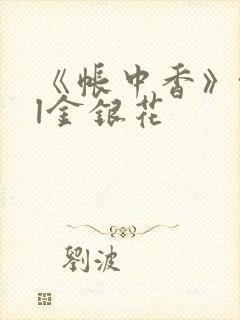 《帐中香》
l金银花
劉波